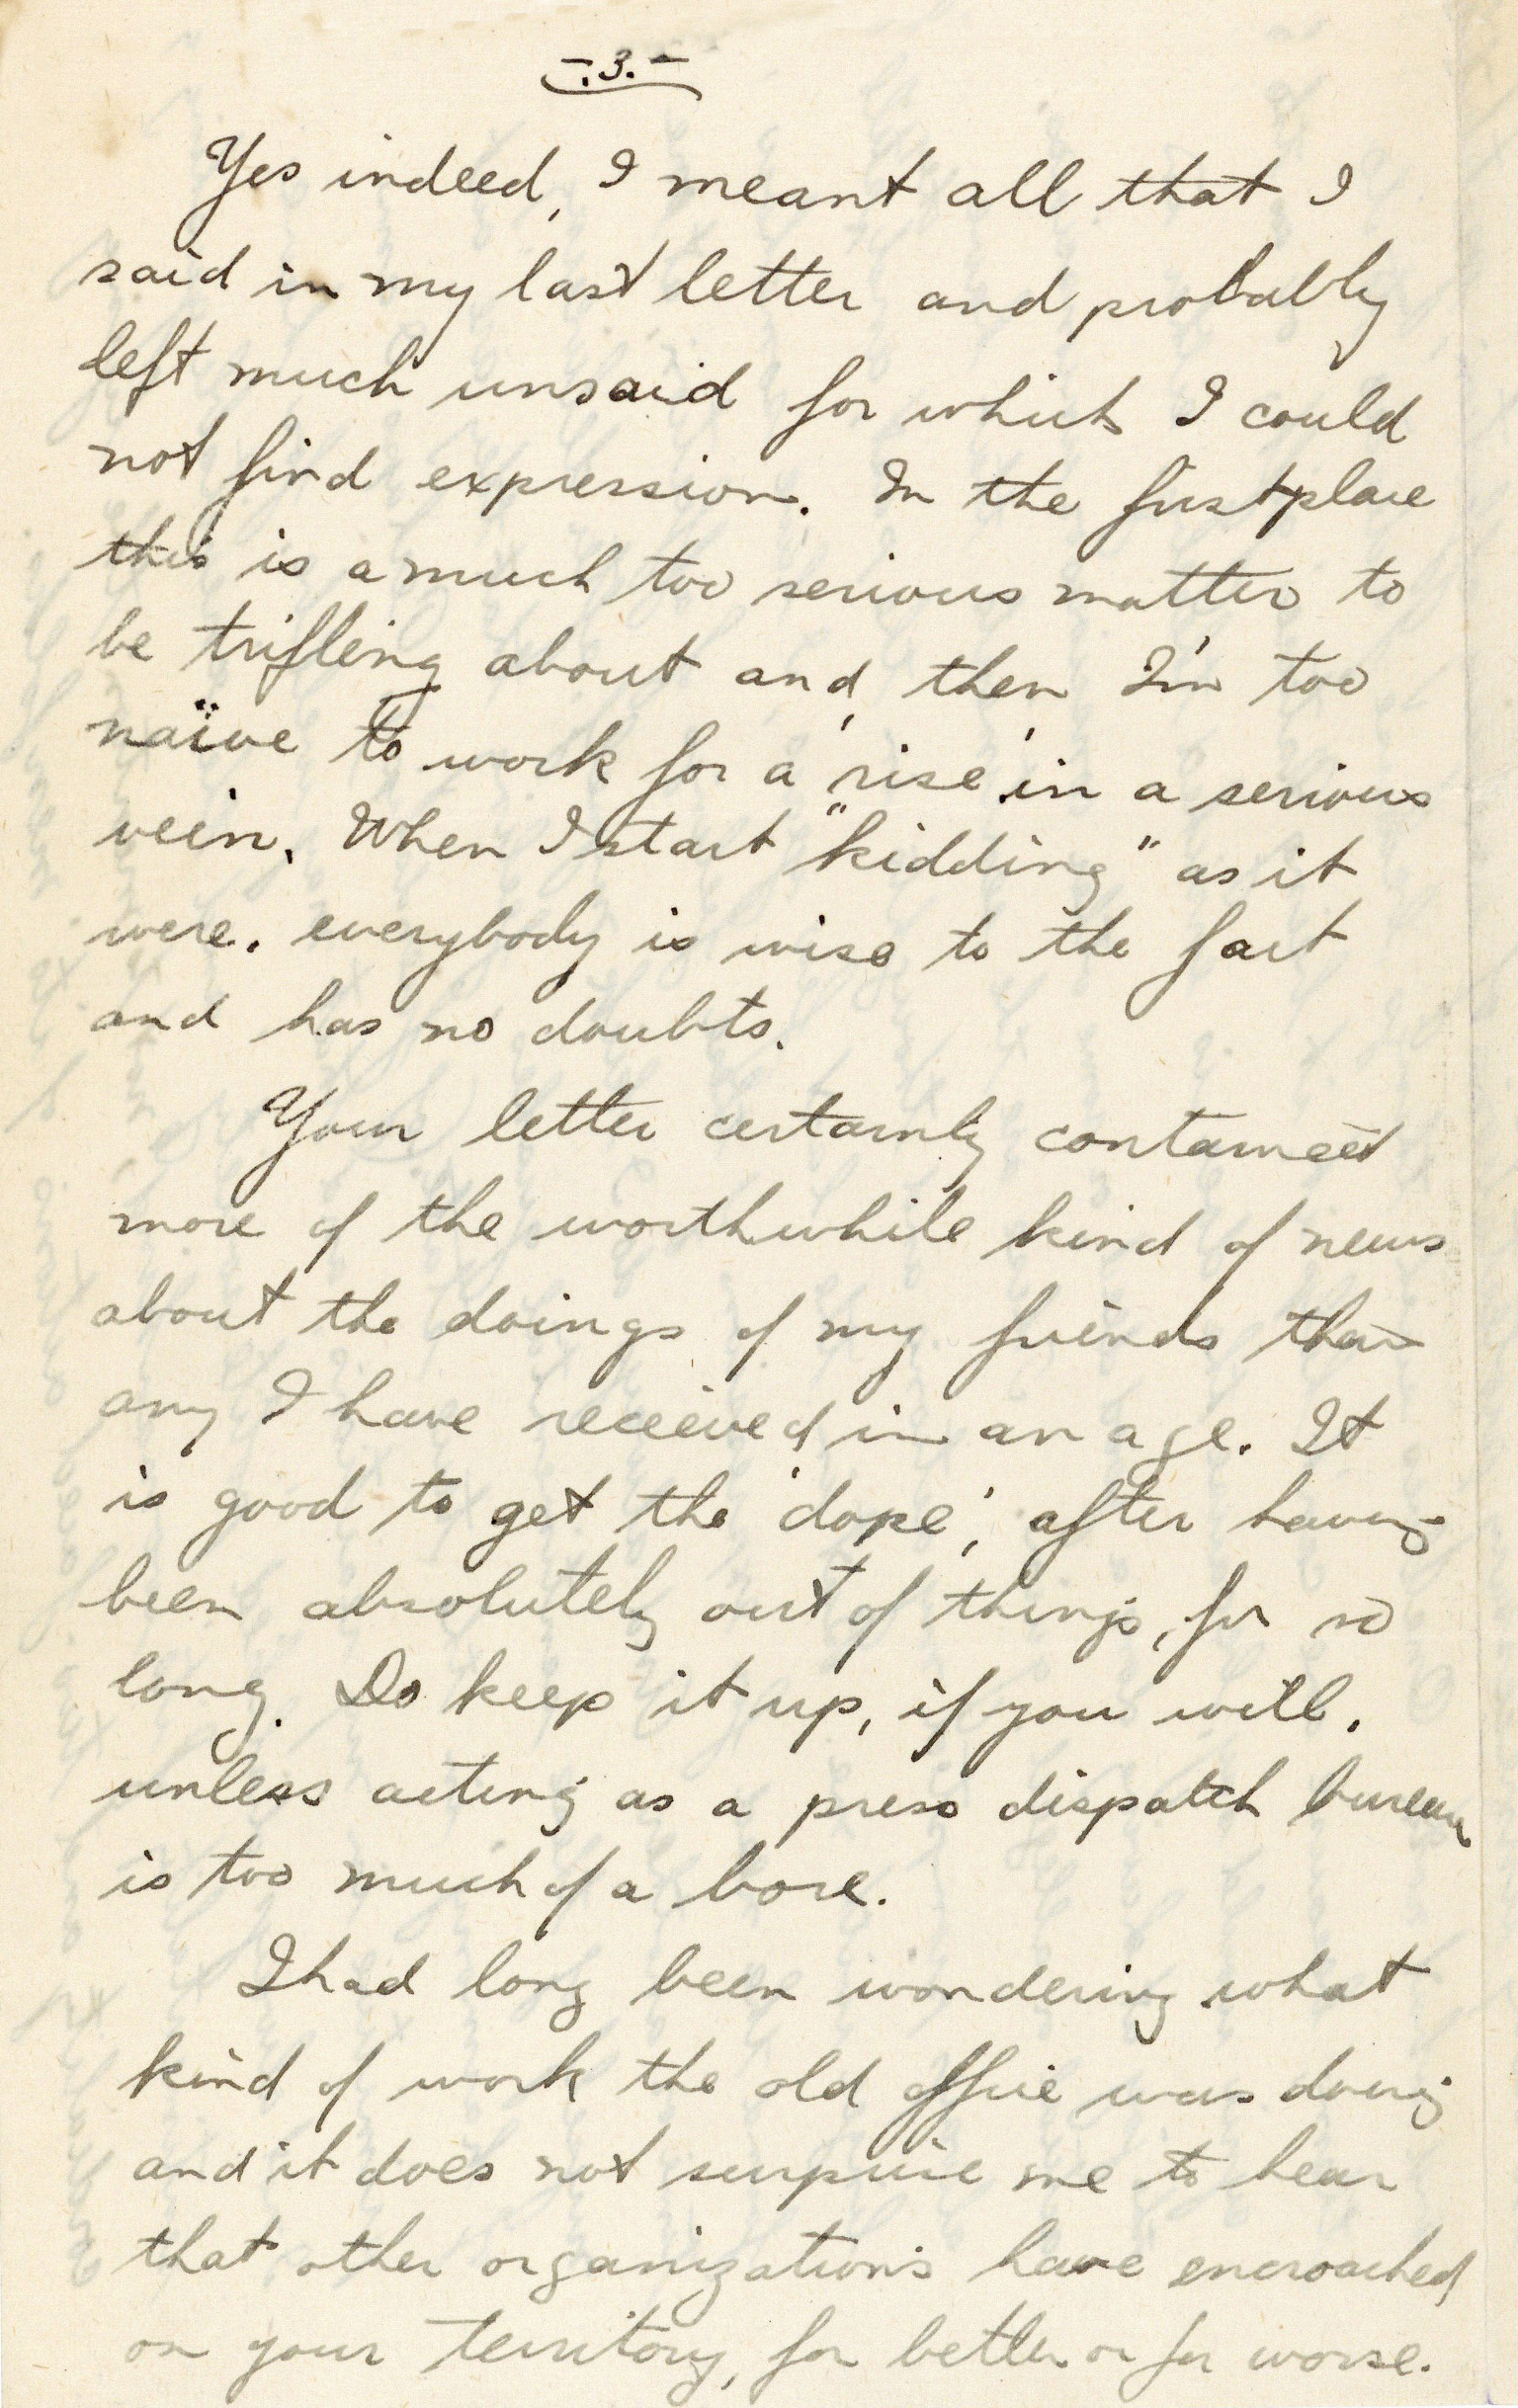 -.3.-
Yes indeed, I meant all that I
said in my last letter and probably
left much unsaid for which I could
not find expression. In the first place
this is a much too serious matter to
be trifling about and then I'm too
naïve to work for a 'rise' in a serious
vein. When I start "kidding" as it
were. everybody is wise to the fact
and has no doubts.
Your letter certainly contained
more of the worthwhile kind of news
about the doings of my friends than
any I have received in an age. It
is good to get the 'dope', after having
been absolutely out of things, for so
long. Do keep it up, if you will,
unless acting as a press dispatch bureau
is too much of a bore.
I had long been wondering what
kind of work the old office was doing
and it does not surprise me to hear
that other organizations have encroached
on your territory, for better or for worse.